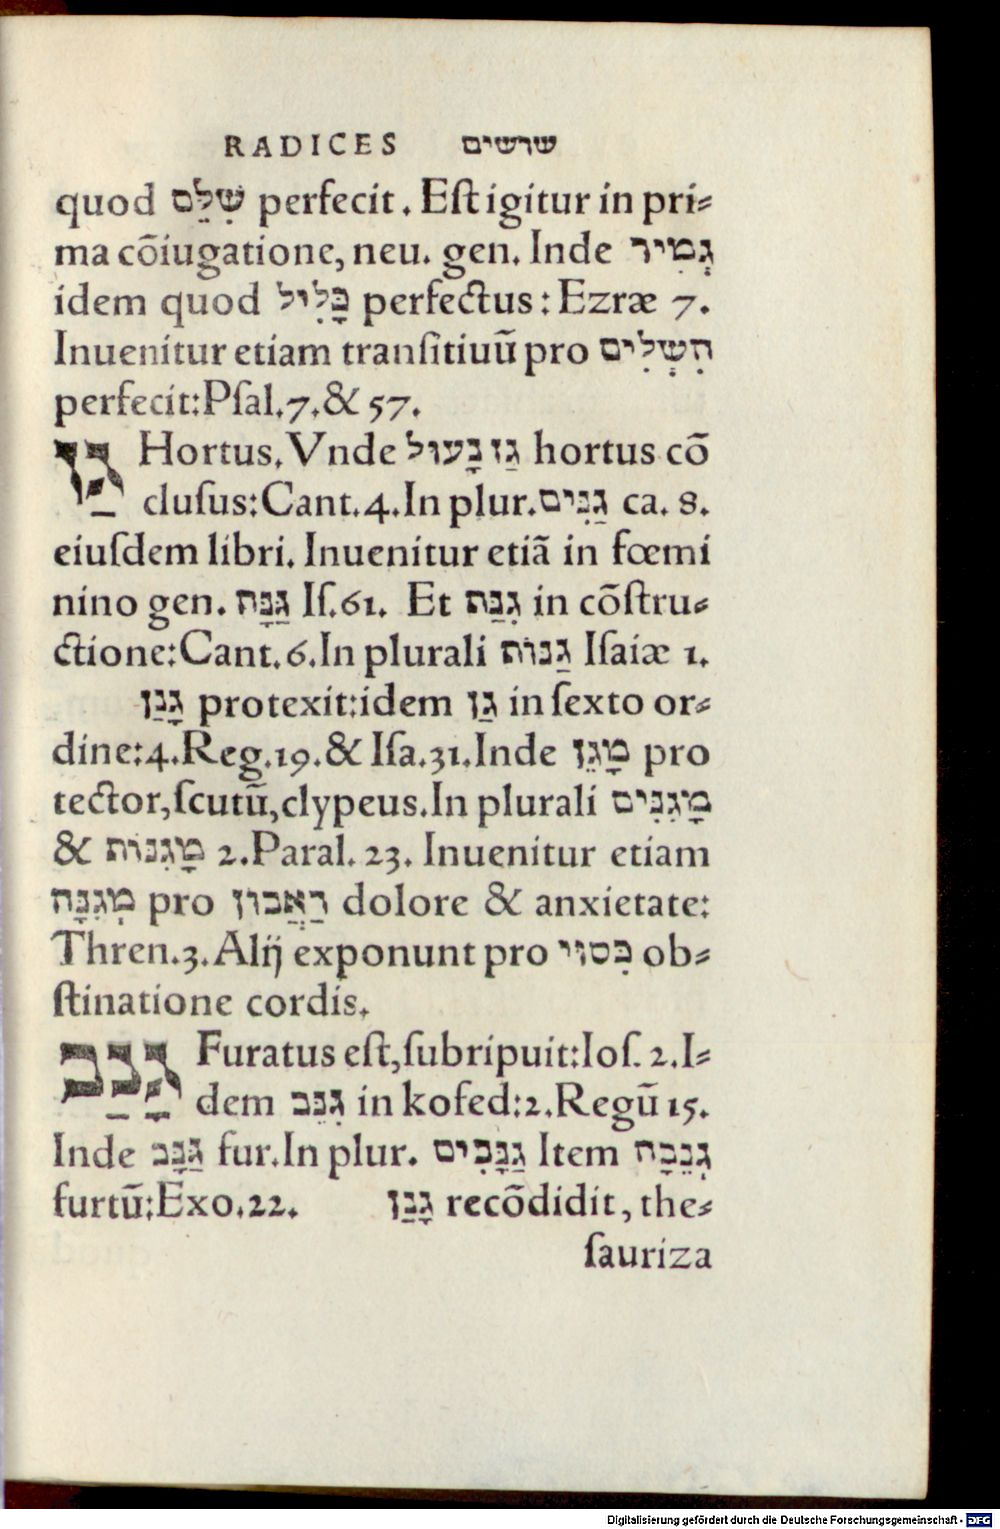 RADICES שרשים
quod שָׁלֵם perfecit. Eſt igitur in pri⸗
ma cõiugatione, neu. gen. Inde גְּמִיר
idem quod כָּלִיל perfectus: Ezræ 7.
Inuenitur etiam tranſitiuũ pro הִשְׁלִים
perfecit: Pſal. 7. & 57.
גַּן Hortus. Vnde גַּן נָעוּל hortus cõ
cluſus: Cant. 4. In plur. גַּנִּים ca. 8.
eiuſdem libri. Inuenitur etiã in fœmi
nino gen. גַּנָּה Iſ. 61. Et גִּנַּת in cõſtru⸗
ctione: Cant. 6. In plurali גַּנּוֹת Iſaiæ 1.
גָּנַן protexit: idem גַּן in ſexto or⸗
dine: 4. Reg. 19. & Iſa. 31. Inde מָגֵן pro
tector, ſcutũ, clypeus. In plurali מָגִנִּים
& מָגִנּוֹת 2. Paral. 23. Inuenitur etiam
מְגִנָּה pro דַּאֲבוֹן dolore & anxietate:
Thren. 3. Alij exponunt pro כִּסּוּי ob⸗
ſtinatione cordis.
גָּנַב Furatus eſt, ſubripuit: Ioſ. 2. I⸗
dem גִּנֵּב in kofed: 2. Regũ 15.
Inde גַּנָּב fur. In plur. גַּנָּבִים Item גְּנֵבָה
furtũ: Exo. 22. גָּנַז recõdidit, the⸗
ſauriza
Digitalisierung gefördert durch die Deutsche Forschungsgemeinschaft - DFG